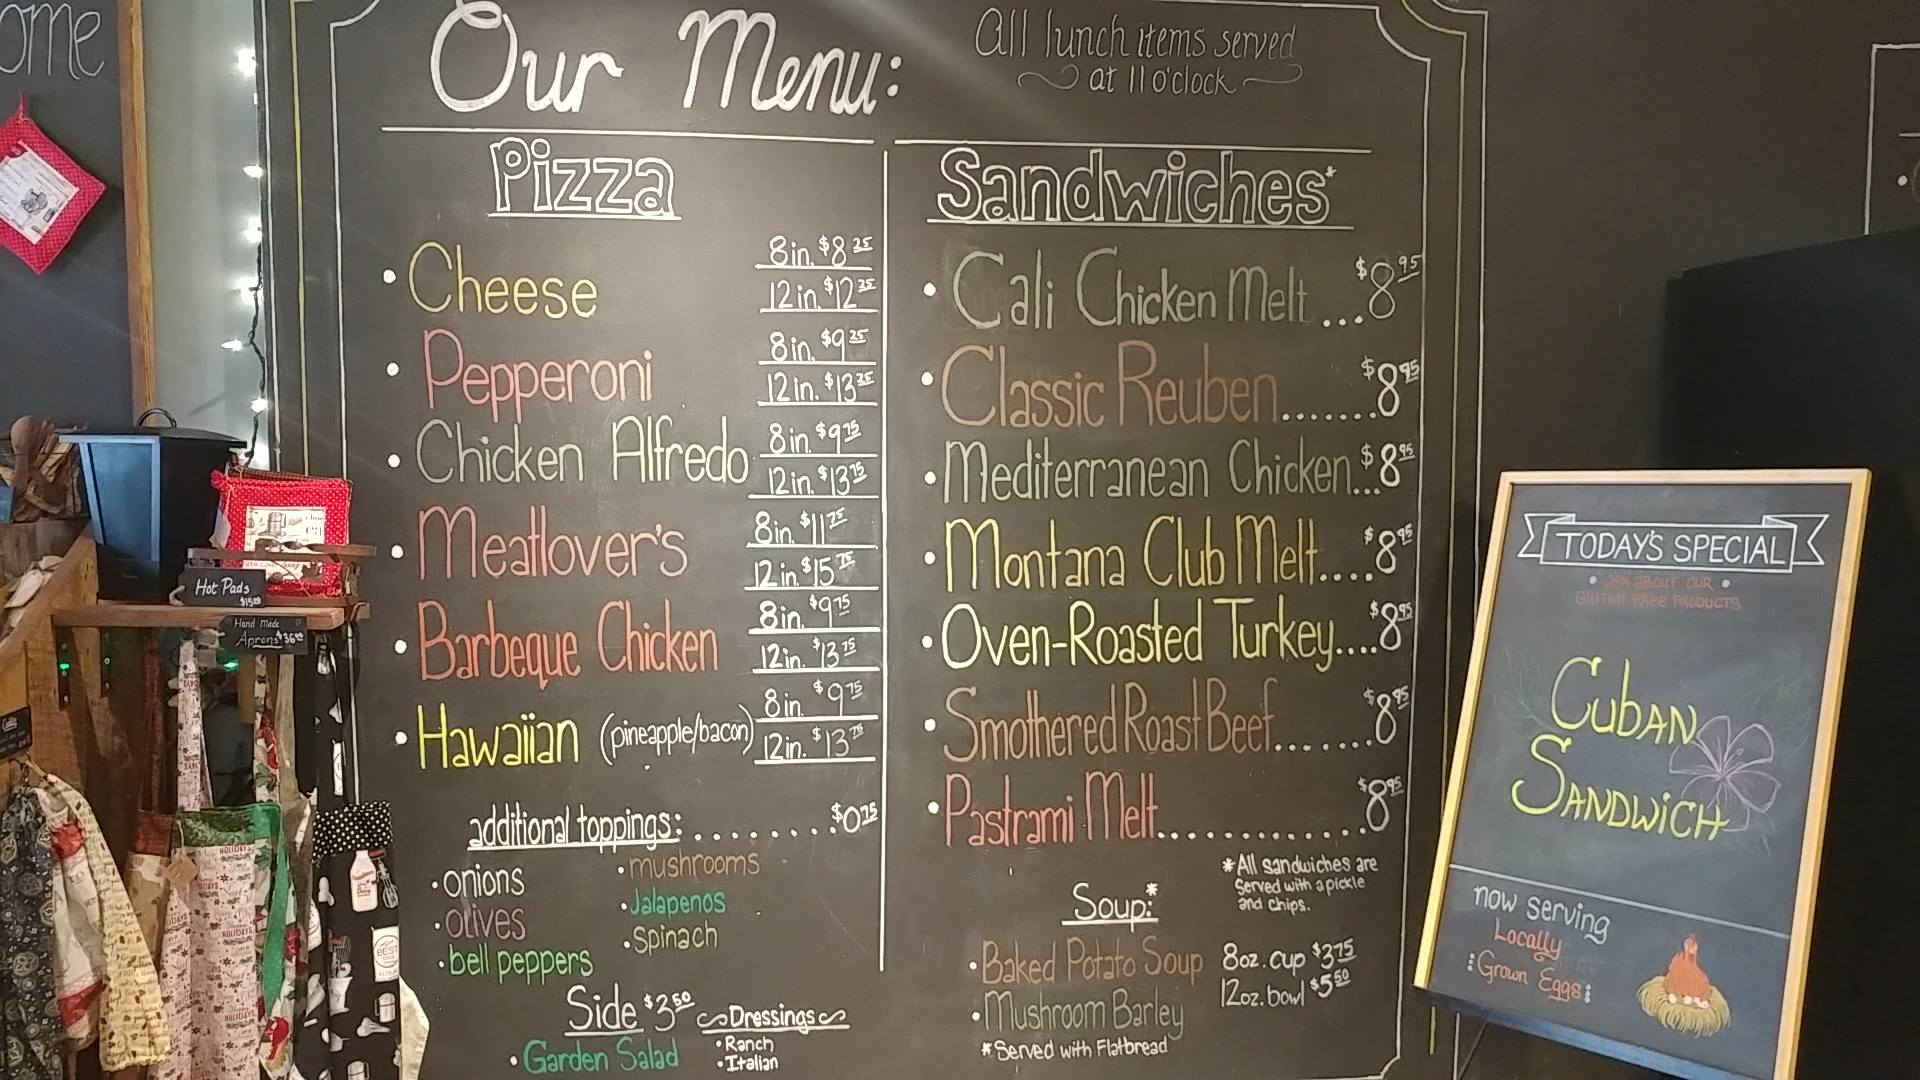 ome
Our Menu:
All lunch items served
at 11 o'clock
Pizza
• Cheese
8in. $8 25
12in. $12 25
• Pepperoni
8in. $9 25
12in. $13 25
• Chicken Alfredo
8in. $9 75
12in. $13 75
• Meatlover's
8in. $11 75
12in. $15 75
• Barbeque Chicken
8in. $9 75
12in. $13 75
• Hawaiian (pineapple/bacon)
8in. $9 75
12in. $13 75
additional toppings: ........ $0 75
• onions
• olives
• bell peppers
• mushrooms
• Jalapenos
• Spinach
Side $3 50
• Garden Salad
Dressings
• Ranch
• Italian
Sandwiches*
• Cali Chicken Melt ... $8 95
• Classic Reuben....... $8 95
• Mediterranean Chicken... $8 95
• Montana Club Melt.... $8 95
• Oven-Roasted Turkey.... $8 95
• Smothered Roast Beef....... $8 95
• Pastrami Melt............ $8 95
*All sandwiches are
Served with a pickle
and chips.
Soup:*
• Baked Potato Soup
• Mushroom Barley
8oz. cup $3 75
12oz. bowl $5 50
*Served with Flatbread
TODAY'S SPECIAL
• ASK ABOUT OUR •
GLUTEN FREE PRODUCTS
CUBAN
SANDWICH
now serving
Locally
Grown Eggs
Hot Pads
$15.00
Hand Made
Aprons $36.00
HOLIDAYS
BEST
FLOUR